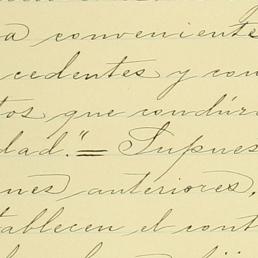 a conveniente
cedentes y con
tos que condúz
dad."= Supues
nes anteriores,
tablecen el cont